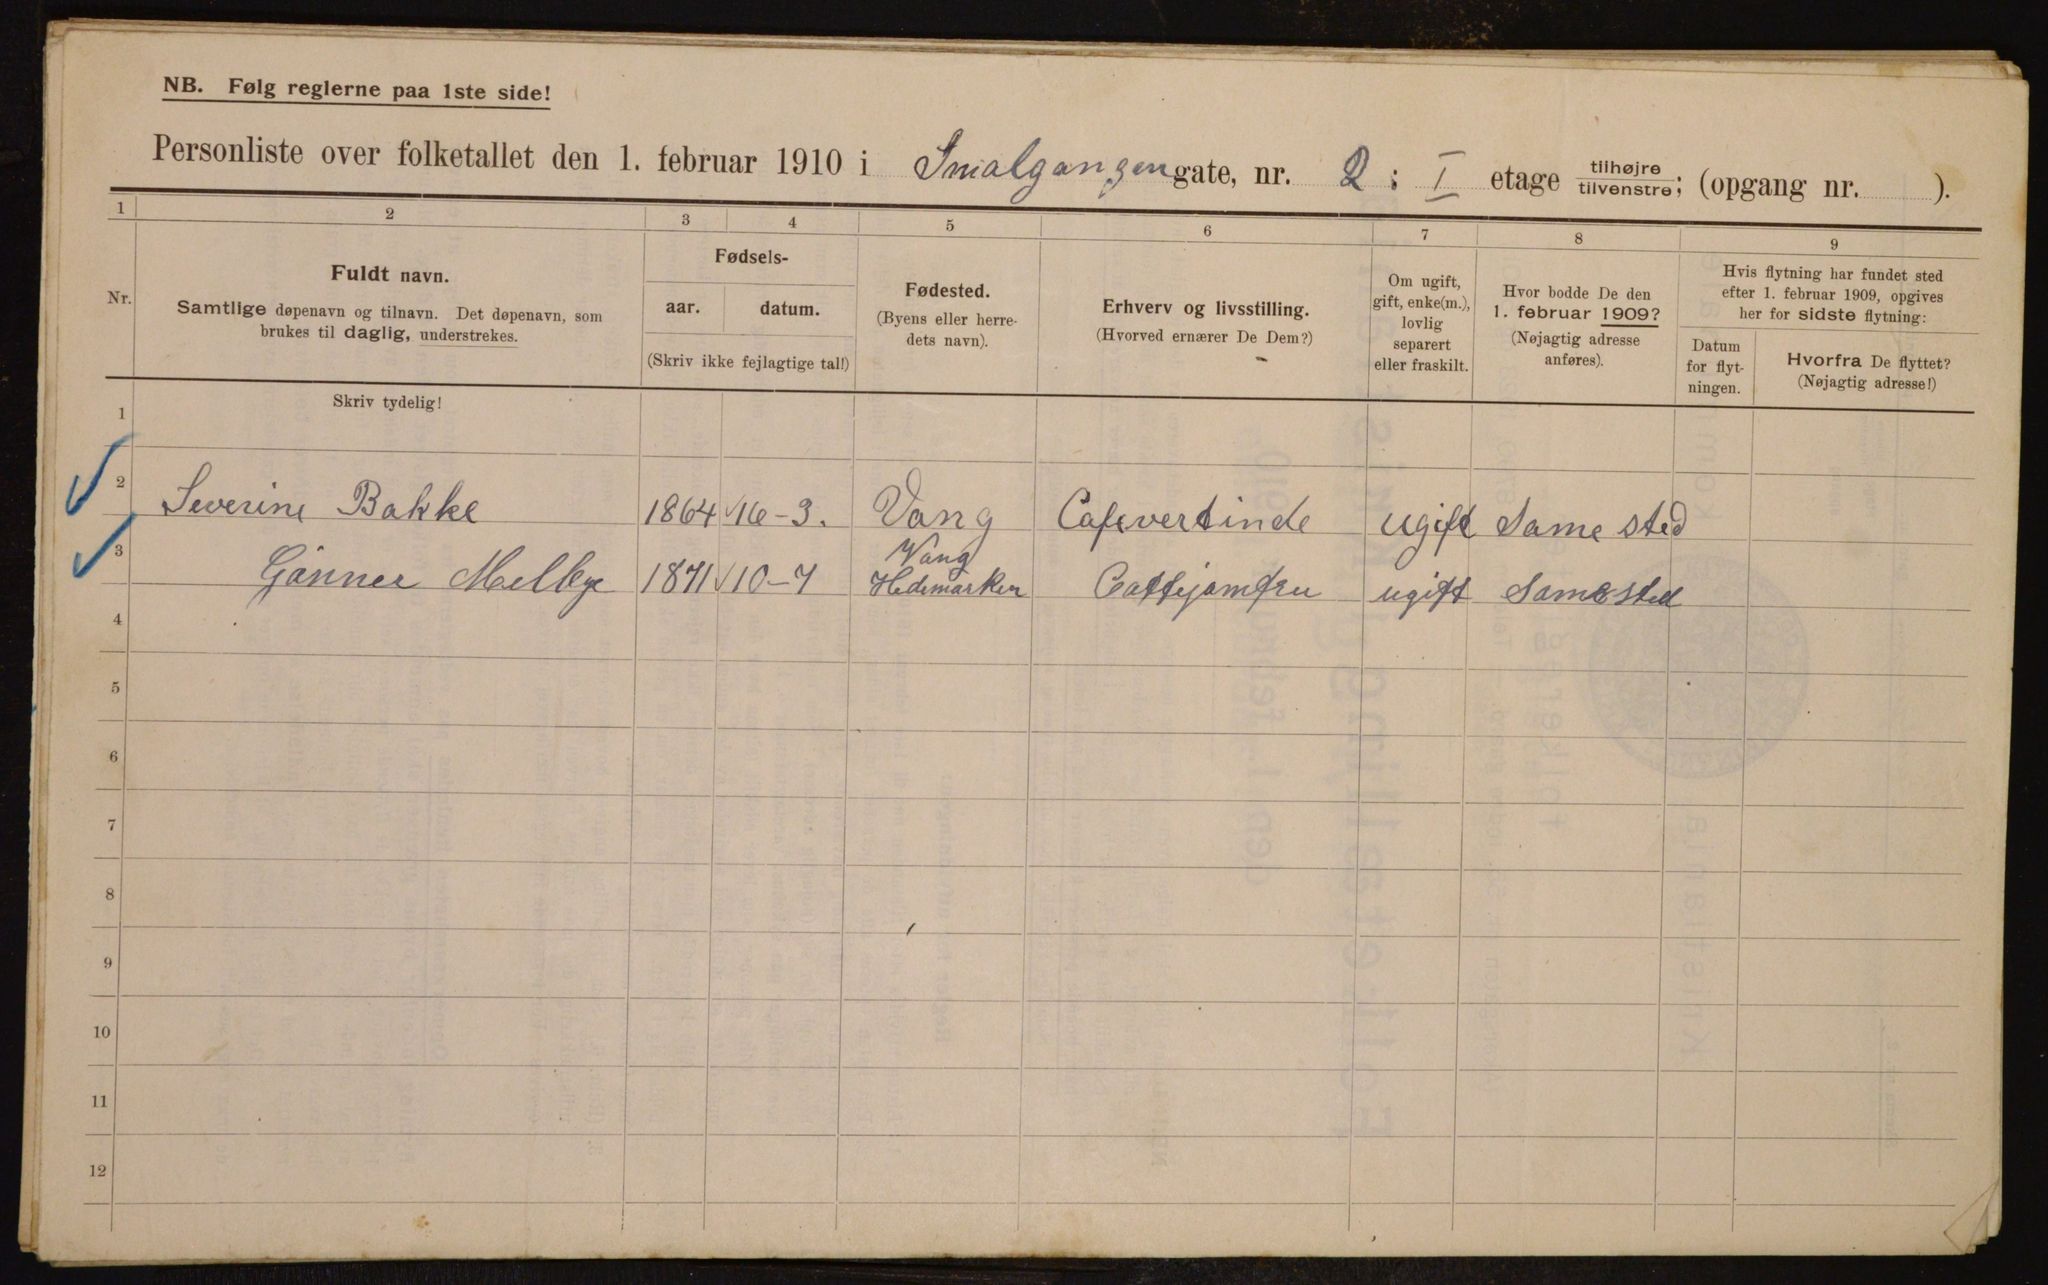 NB. Følg reglerne paa 1ste side!
Personliste over folketallet den 1. februar 1910 i Smalgangen gate, nr. 2 : I etage tilhøjre/tilvenstre; (opgang nr. ).
1 2 3 4 5 6 7 8 9
Nr.
Fuldt navn.
Samtlige døpenavn og tilnavn. Det døpenavn, som
brukes til daglig, understrekes.
Fødsels-
aar. datum.
(Skriv ikke fejlagtige tal!)
Fødested.
(Byens eller herre-
dets navn).
Erhverv og livsstilling.
(Hvorved ernærer De Dem?)
Om ugift,
gift, enke(m.),
lovlig
separert
eller fraskilt.
Hvor bodde De den
1. februar 1909?
(Nøjagtig adresse
anføres).
Hvis flytning har fundet sted
efter 1. februar 1909, opgives
her for sidste flytning:
Datum
for flyt-
ningen.
Hvorfra De flyttet?
(Nøjagtig adresse!)
Skriv tydelig!
1
2 Severine Bakke 1864 16-3. Vang Cafevertinde ugift Samested
3 Gånner Melbye 1871 10-7 Vang Hedemarken ugift Samested
4
5
6
7
8
9
10
11
12